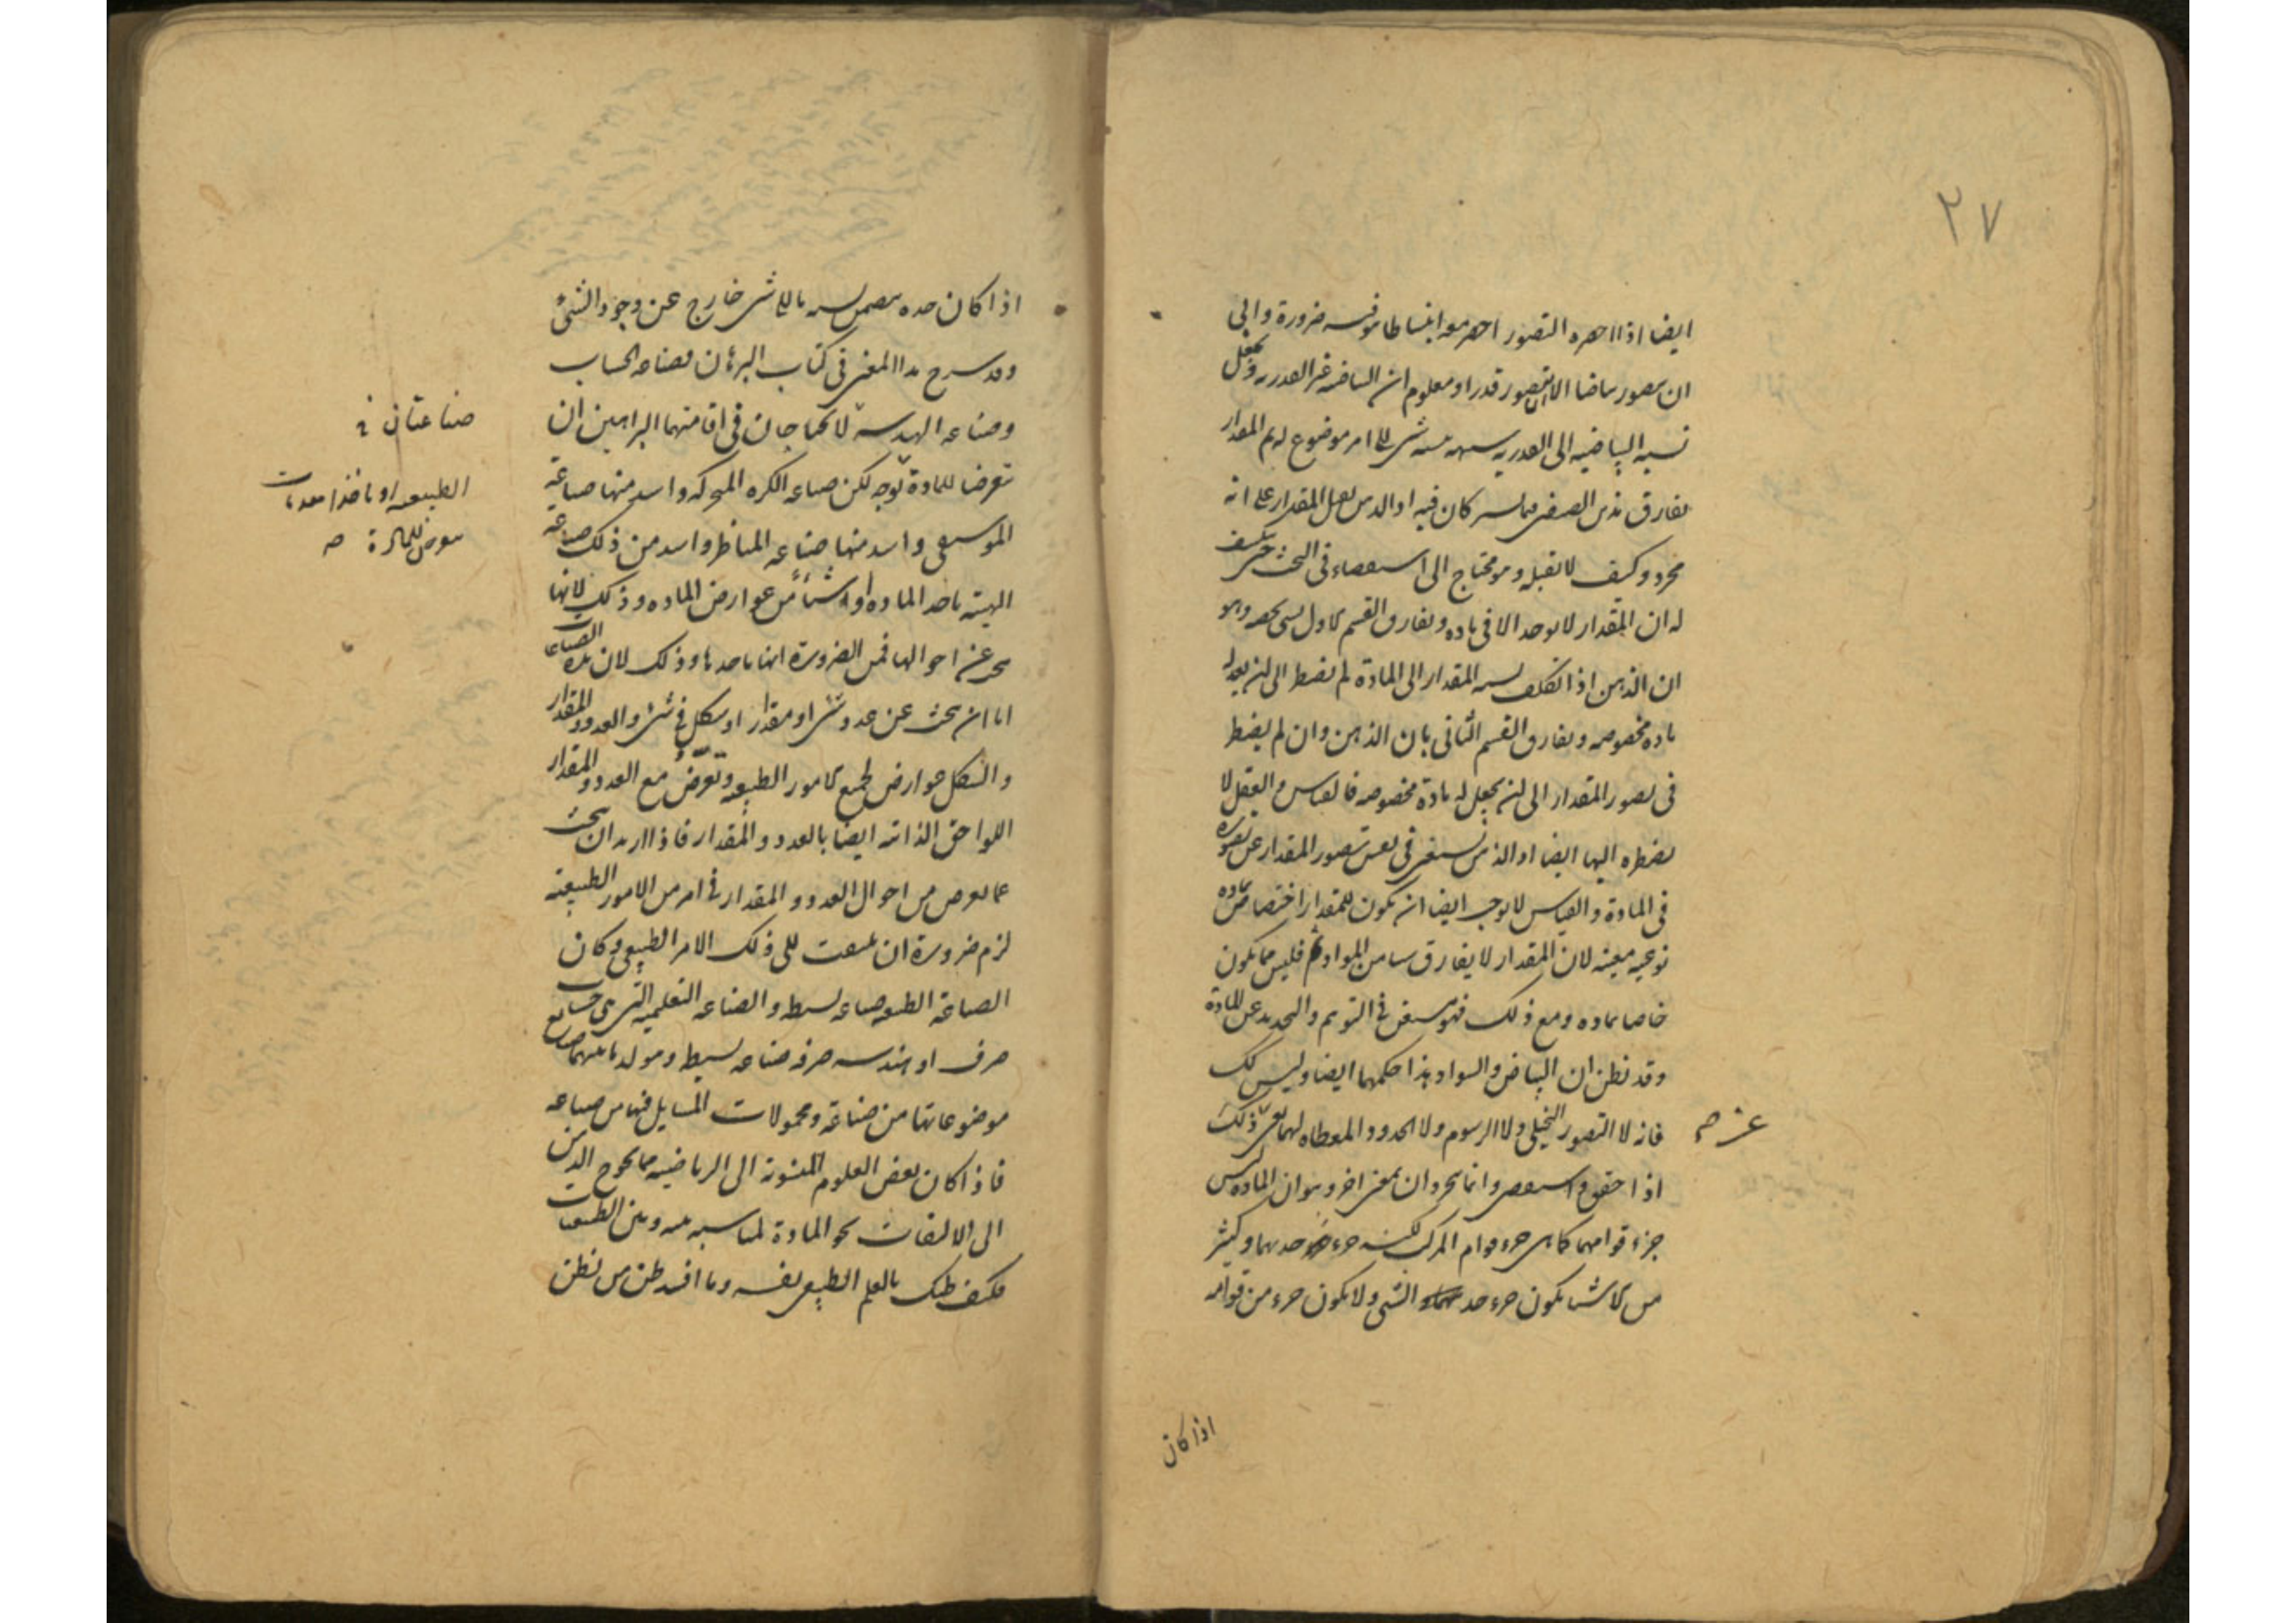 ٢٧
ايضا اذا احضره التصور احضر معه انبساطا هو فيه ضرورة وابى
ان يتصور بياضا الا ان يتصور قدرا ومعلوم ان البياضيه غير القدريه ونجعل
نسبه البياضيه الى القدريه شبيهه بنسبه شى الى امر موضوع له ثم المقدار
يفارق هذين الصنفين كان فيه اذ الذهن يقبل المقدار على انه
مجرد وكيف لا يقبله وهو محتاج الى استقصاء فى البحث حتى ينكشف
له ان المقدار لا يوجد الا فى ماده ويفارق القسم الاول بشى وهو
ان الذهن اذا تكلف نسبه المقدار الى المادة لم يضطر الى ان يعد له
ماده مخصوصه ويفارق القسم الثانى بان الذهن وان لم يضطر
فى تصور المقدار الى ان يجعل له مادة مخصوصه فالقياس والعقل لا
يضطره اليها ايضا اذ الذهن يستغنى فى نفس تصور المقدار عن تصوره
فى المادة والقياس لا يوجب ايضا ان يكون للمقدار اختصاص بماده
نوعيه معينه لان المقدار لا يفارق شيا من المواد فليس مما يكون
خاصا بماده ومع ذلك فهو مستغن فى التوهم والتحديد عن المادة
وقد نظن ان البياض والسواد هذا حكمهما ايضا وليس كك
فانه لا التصور التخيلى ولا الرسوم ولا الحدود المعطاه لهما ذلك
اذا حقق واستقصى وانما يجردان بمعنى اخر وهو ان الماده ليس
جزء قوامهما كما هى جزء قوام المركب لكنه جزء حدهما وكثير
من الاشيا يكون جزء حد الشى ولا يكون جزء من قوامه
اذا كان
اذا كان حده يتضمن نسبه ما الى شى خارج عن وجود الشئ
وقد شرح هذا المعنى فى كتاب البرهان فصناعه الحساب
وصناعه الهندسه لا تحتاجان فى اقامتهما البراهين ان
تعرضا للمادة لكن صناعه الكره المتحركه واشد منها صناعة
الموسيقى واشد منها صناعه المناظر واشد من ذلك صناعه
الهيئه ياخذ الماده او شيئا من عوارض الماده وذلك لانها
تبحث عن احوالها فمن الضرورة انها ياخذها وذلك لان هذه الصناعات
اما ان يبحث عن عدد شى او مقدار او شكل فى شى والعدد والمقدار
والشكل عوارض لجميع الامور الطبيعيه وتعرض مع العدد والمقدار
اللواحق الذاتيه ايضا بالعدد والمقدار فاذا اريد ان يبحث
عما يعرض من احوال العدد والمقدار فى امر من الامور الطبيعيه
لزم ضرورة ان يلتفت الى ذلك الامر الطبيعى وكان
الصناعة الطبيعيه صناعه بسيطه والصناعه التعليميه التى هى حساب
صرف او هندسه صرف صناعه بسيطه وتولد ما بينهما صنايع
موضوعاتها من صناعة ومحمولات المسايل فيها من صناعه
فاذا كان بعض العلوم المنسوبة الى الرياضيه مما يحوج الذهن
الى الالتفات نحو المادة لمناسبه بينه وبين الطبيعيات
فكيف ظنك بالعلم الطبيعى نفسه وما افسد ظن من يظن
صناعتان
للمادة صح